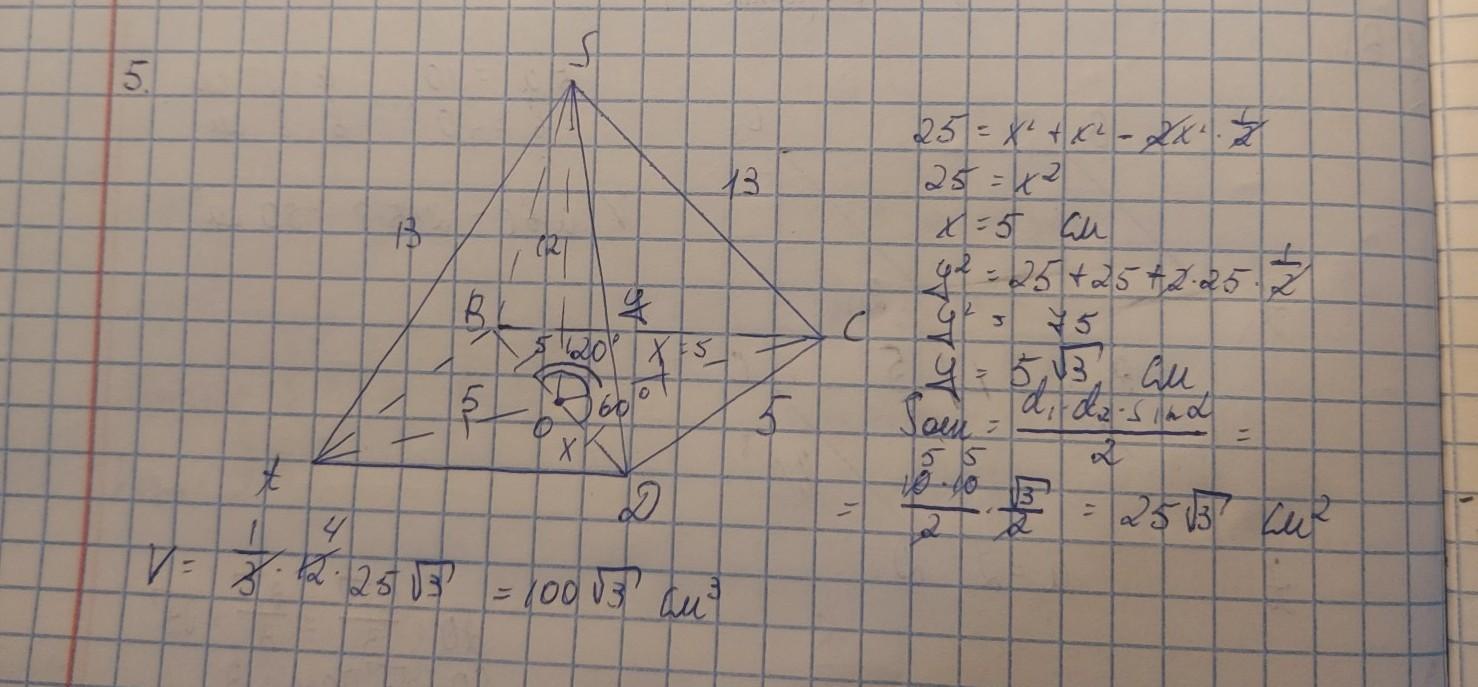 5.
S
13
13
12
B
y
C
5
120°
x = 5
5
60°
O
x
5
A
D
25 = x² + x² - 2x² · 1/2
25 = x²
x = 5 см
y² = 25 + 25 + 2 · 25 · 1/2
y² = 75
y = 5√3 см
Sосн = d₁ · d₂ · sin α / 2 =
5 5
= 10 · 10 / 2 · √3 / 2 = 25√3 см²
1 4
V = 1/3 · 12 · 25√3 = 100√3 см³